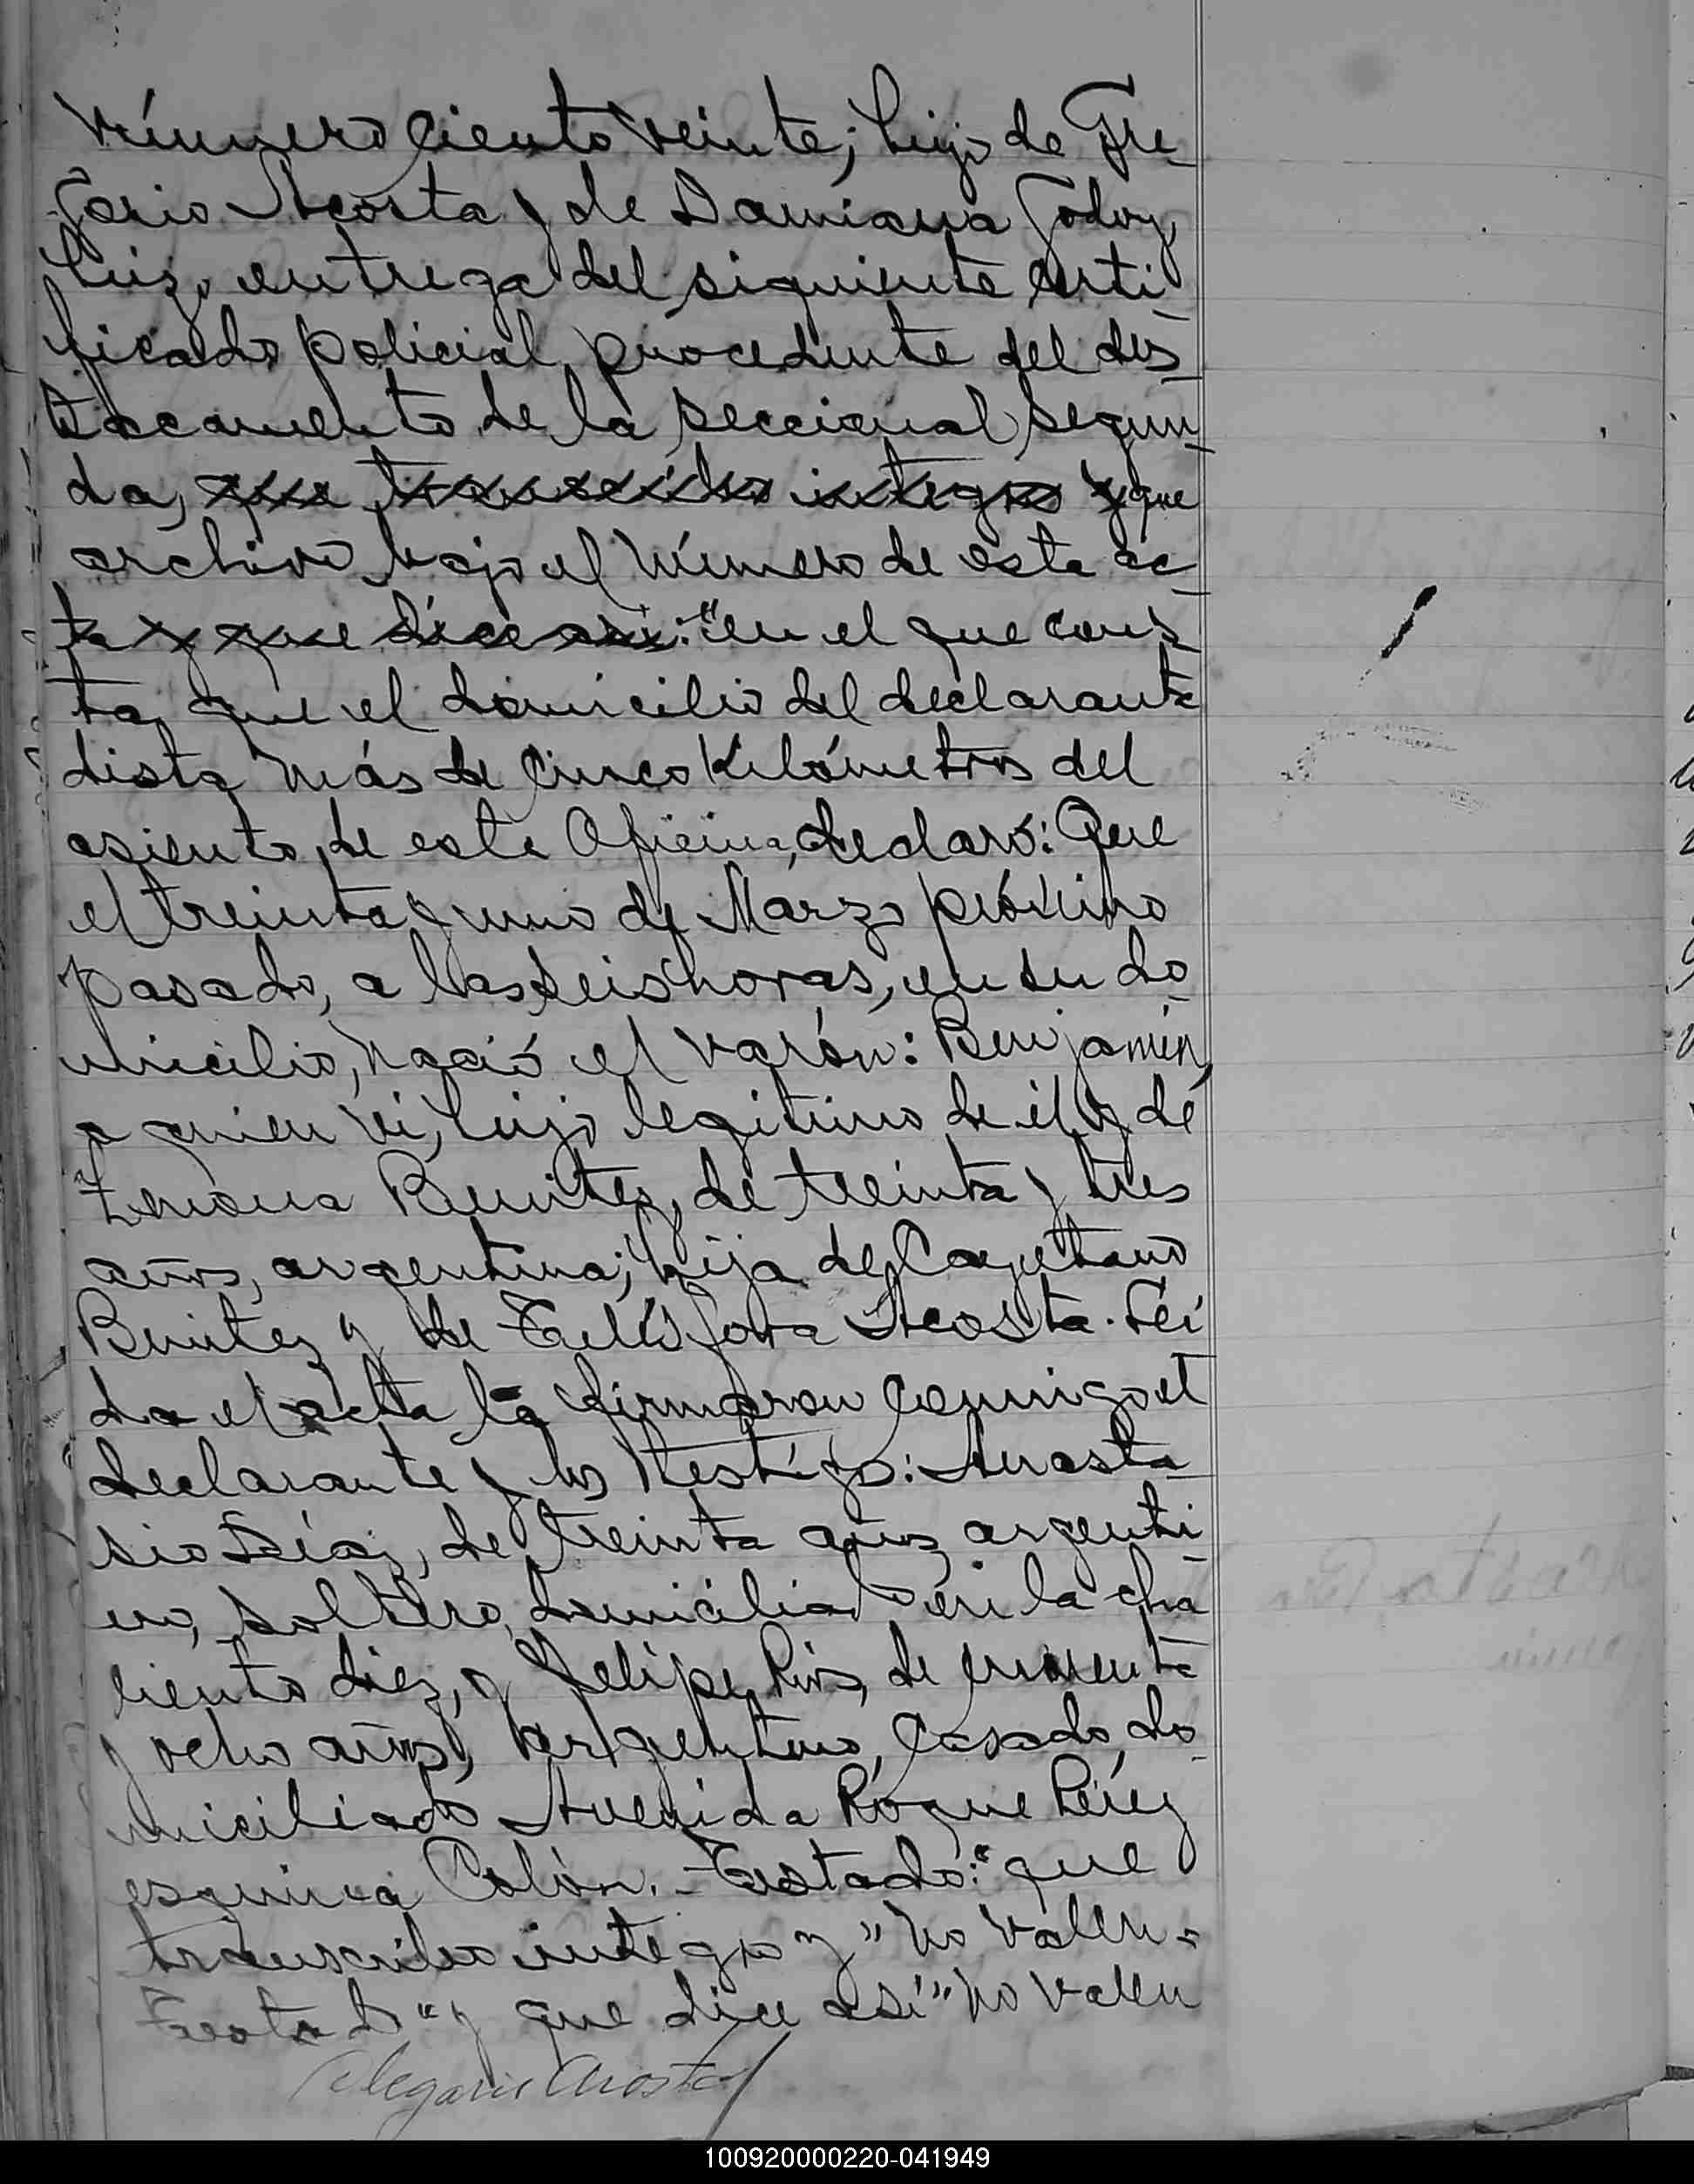 número ciento veinte; hijo de Gre-
gorio Acosta y de Damiana Godoy,
hizo entrega del siguiente certi-
ficado policial, procedente del des-
tacamento de la seccional segun-
da, que transcribo integro y que
archivo bajo el número de esta ac-
ta y que dice asi: "en el que cons-
ta, que el domicilio del declarante
dista más de cinco Kilómetros del
asiento de esta Oficina, declaró: Que
el treinta y uno de Marzo próximo
pasado, a las seis horas, en su do-
micilio, nació el varón: Benjamin,
a quien vi, hijo legitimo de él y de
Benitez, de treinta y tres
años, argentina; hija de Cayetano
Benitez y de Telésfora Acosta. Leí-
da el acta la firmaron conmigo el
declarante y los testigos: Anasta-
sio Díaz, de treinta años, argenti-
no, soltero, domiciliado en la cha
ciento diez, y Felipe Rios, de cuarenta
y ocho años, argentino, casado, do-
miciliado Avenida Roque Pérez
esquina Colón. - Testado: "que
transcribo integro y" no valen -
Testado "y que dice asi" no valen
Olegario Acosta
100920000220-041949